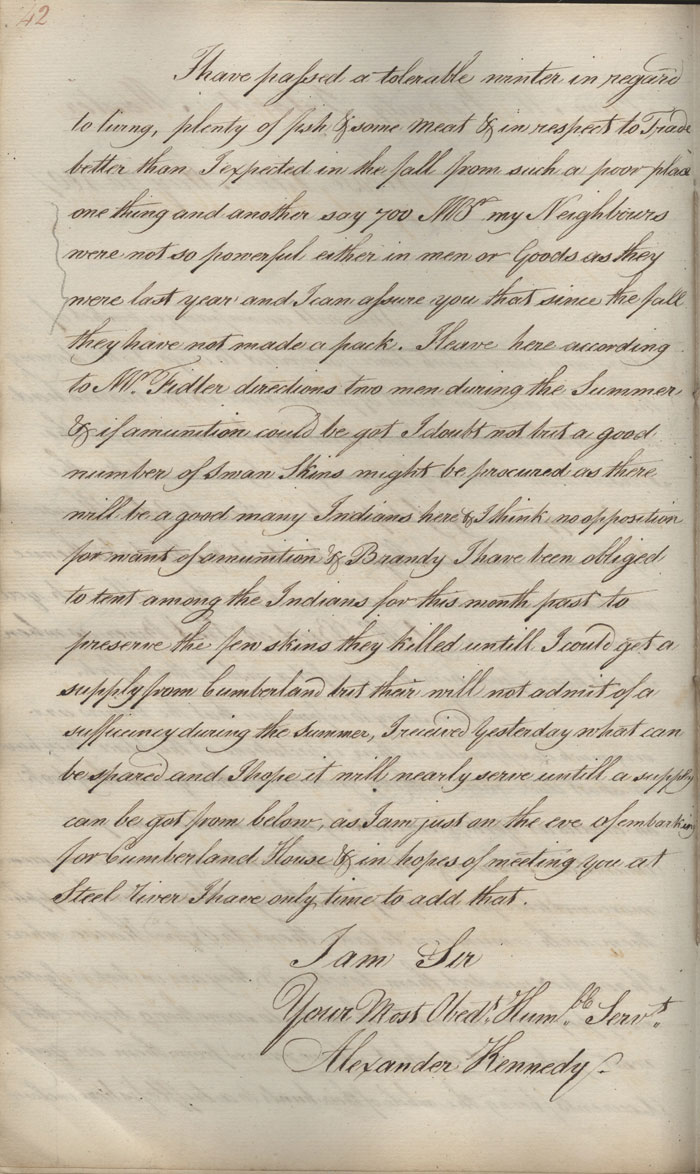 42
I have passed a tolerable winter in regard
to living, plenty of fish & some meat & in respect to Trade
better than I expected in the fall from such a poor place
one thing and another say 700 MBr my Neighbours
were not so powerful either in men or Goods as they
were last year and I can assure you that since the fall
they have not made a pack. I leave here according
to Mr. Fidler directions two men during the Summer
& if amunition could be got I doubt not but a good
number of Swan Skins might be procured as there
will be a good many Indians here & I think no opposition
for want of amunition & Brandy I have been obliged
to tent among the Indians for this month past to
preserve the few skins they killed untill I could get a
supply from Cumberland but their will not admit of a
sufficiency during the Summer, I received Yesterday what can
be spared and I hope it will nearly serve untill a supply
can be got from below, as I am just on the eve of embarking
for Cumberland House & in hopes of meeting you at
Steel River I have only time to add that.
I am Sir
Your Most Obedt. Humbl. Servt.
Alexander Kennedy